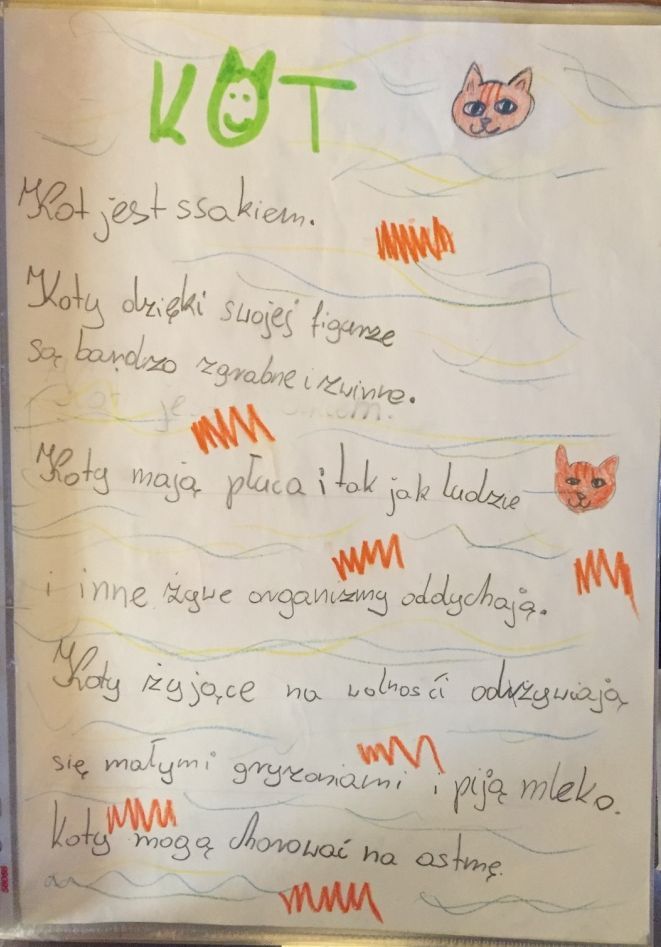 KOT
Kot jest ssakiem.
Koty dzięki swojeś figurze
są bardzo zgrabne i zwinne.
Koty mają płuca i tak jak ludzie
i inne żywe organizmy oddychają.
Koty żyjące na wolności odżywiają
się małymi gryzoniami i piją mleko.
Koty mogą chorować na astmę.